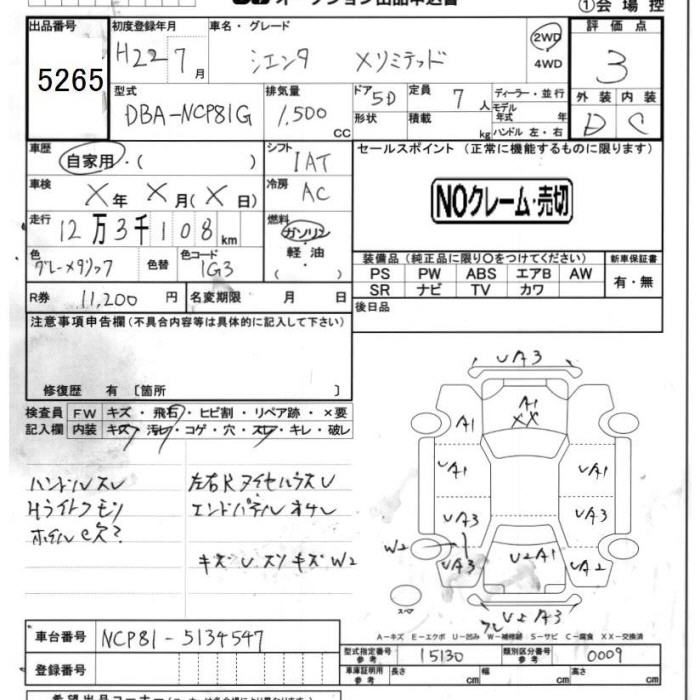 オークション出品申込書
①会場控
出品番号
5265
初度登録年月
H22 7月
車名・グレード
シエンタ Xリミテッド
2WD
4WD
評価点
3
型式
DBA-NCP81G
排気量
1,500 CC
ドア 5D
形状
定員 7人
積載 kg
ディーラー・並行
モデル年式 年
ハンドル 左・右
外装 内装
D C
車歴
自家用・( )
シフト
IAT
セールスポイント (正常に機能するものに限ります)
NOクレーム・売切
車検
X年 X月(X日)
冷房
AC
走行
12万3千108km
燃料
ガソリン・軽油・( )
色
グレーメタリック
色替
色コード
1G3
装備品(純正品に限り〇をつけてください)
PS PW ABS エアB AW
SR ナビ TV カワ
新車保証書
有・無
R券 11,200円
名変期限 月 日
後日品
注意事項申告欄(不具合内容等は具体的に記入して下さい)
修復歴 有〔箇所 〕
検査員記入欄
FW キズ・飛石・ヒビ割・リペア跡・×要
内装 キズ・汚レ・コゲ・穴・スレ・キレ・破レ
ハンドルスレ
Hライトクモリ
ホイルC欠?
エンドパネル
キズU スリキズ W2
UA3
A1
XX
A1 A1
UA1 UA1
UA3 UA3
W2
UA3 U2A1 UA2
スペア
U2A3
A-キズ E-エクボ U-凹み W-補修跡 S-サビ C-腐食 XX-交換済
車台番号 NCP81-5134547
登録番号
型式指定番号 参考 15130
類別区分番号 参考 0009
車庫証明用 参考 長さ cm 幅 cm 高さ cm